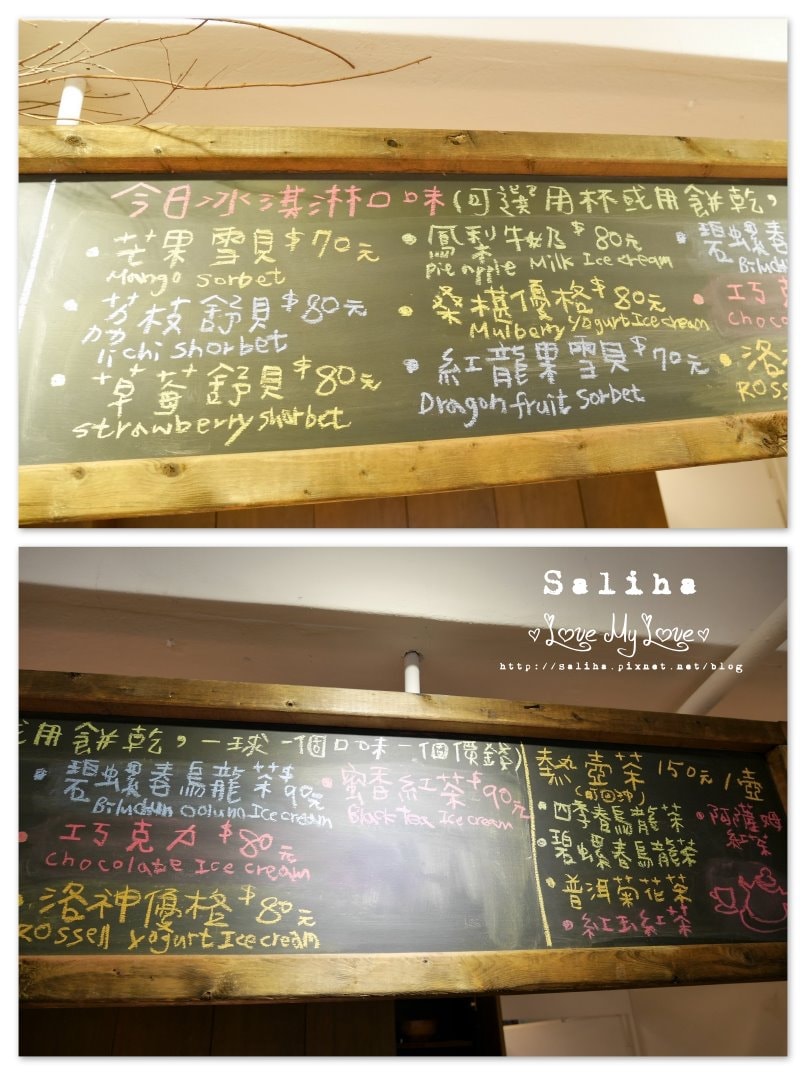 今日冰淇淋口味(可選用杯或用餅乾，
芒果雪貝$70元
Mango sorbet
荔枝舒貝$80元
lichi shorbet
草莓舒貝$80元
strawberry shorbet
鳳梨牛奶$80元
pie apple Milk Ice cream
桑椹優格$80元
Mulberry yogurt Ice cream
紅龍果雪貝$70元
Dragon fruit sorbet
碧螺春
Biluch
巧克
choco
洛
ROSS
Saliha
Love My Love
http://saliha.pixnet.net/blog
或用餅乾，一球一個口味一個價錢)
碧螺春烏龍茶$90元
Ice cream
巧克力$80元
chocolate Ice cream
洛神優格$80元
ROSSEll yogurt Ice cream
蜜香紅茶$90元
Black Tea Ice cream
熱壺茶150元/壺
(可回沖)
四季春烏龍茶
碧螺春烏龍茶
普洱菊花茶
紅玉紅茶
阿薩姆
紅茶